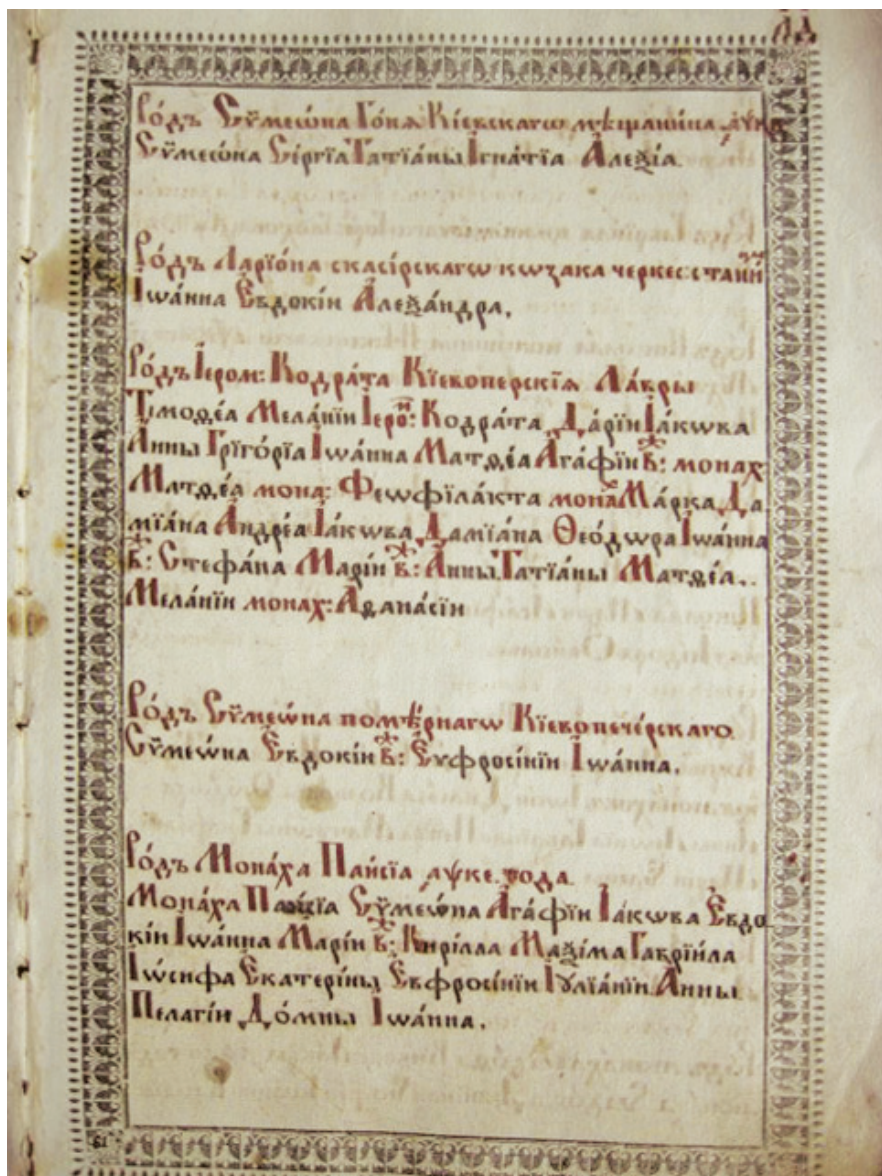 лд
Ро́дъ Сѷмеѡ́на Го́нѧ Кі́евскагѡ мѣщани́на
Сѷмеѡ́на Се́ргїа Татїа́ны Ігна́тїа Алеѯі́а
Ро́дъ Ларїо́на скасі́рскагѡ кѡзака черкес: стани́
Іѡа́нна Евдокїи Алеѯа́ндра.
Ро́дъ Іером: Кодра́та Кїевоперскїѧ Ла́вры
Тімоѳе́а Мела́нїи Іеро: Кодра́та Да́рїи Іа́кѡва
А́нны Грїго́рїа Іѡа́нна Матѳе́а Ага́фїи в҃: монах:
Матѳе́а мона: Феѡфїла́кта мона Ма́рка Да
мїа́на Андре́а Іа́кѡва Дамїа́на Ѳео́дѡра Іѡа́нна
в҃: Стефа́на Марі́и в҃: А́нны Татїа́ны Матѳе́а..
Мела́нїи монах: Аѳана́сїи
Ро́дъ Сѷмеѡ́на помѣ́рнагѡ Кїевопече́рскаго
Сѷмеѡ́на Евдокі́и в҃: Еуфросі́нїи Іѡа́нна.
Ро́дъ Мона́ха Паи́сїа ҂аѱке года
Мона́ха Паи́сїа Сѷмеѡ́на Ага́фїи Іа́кѡва Евдо
кі́и Іѡа́нна Марі́и в҃: Кирі́лла Маѯі́ма Гаврїи́ла
Іѡ́сифа Екатері́ны Евфросі́нїи Іулїа́нїи А́нны
Пелагі́и До́мны Іѡа́нна.
61